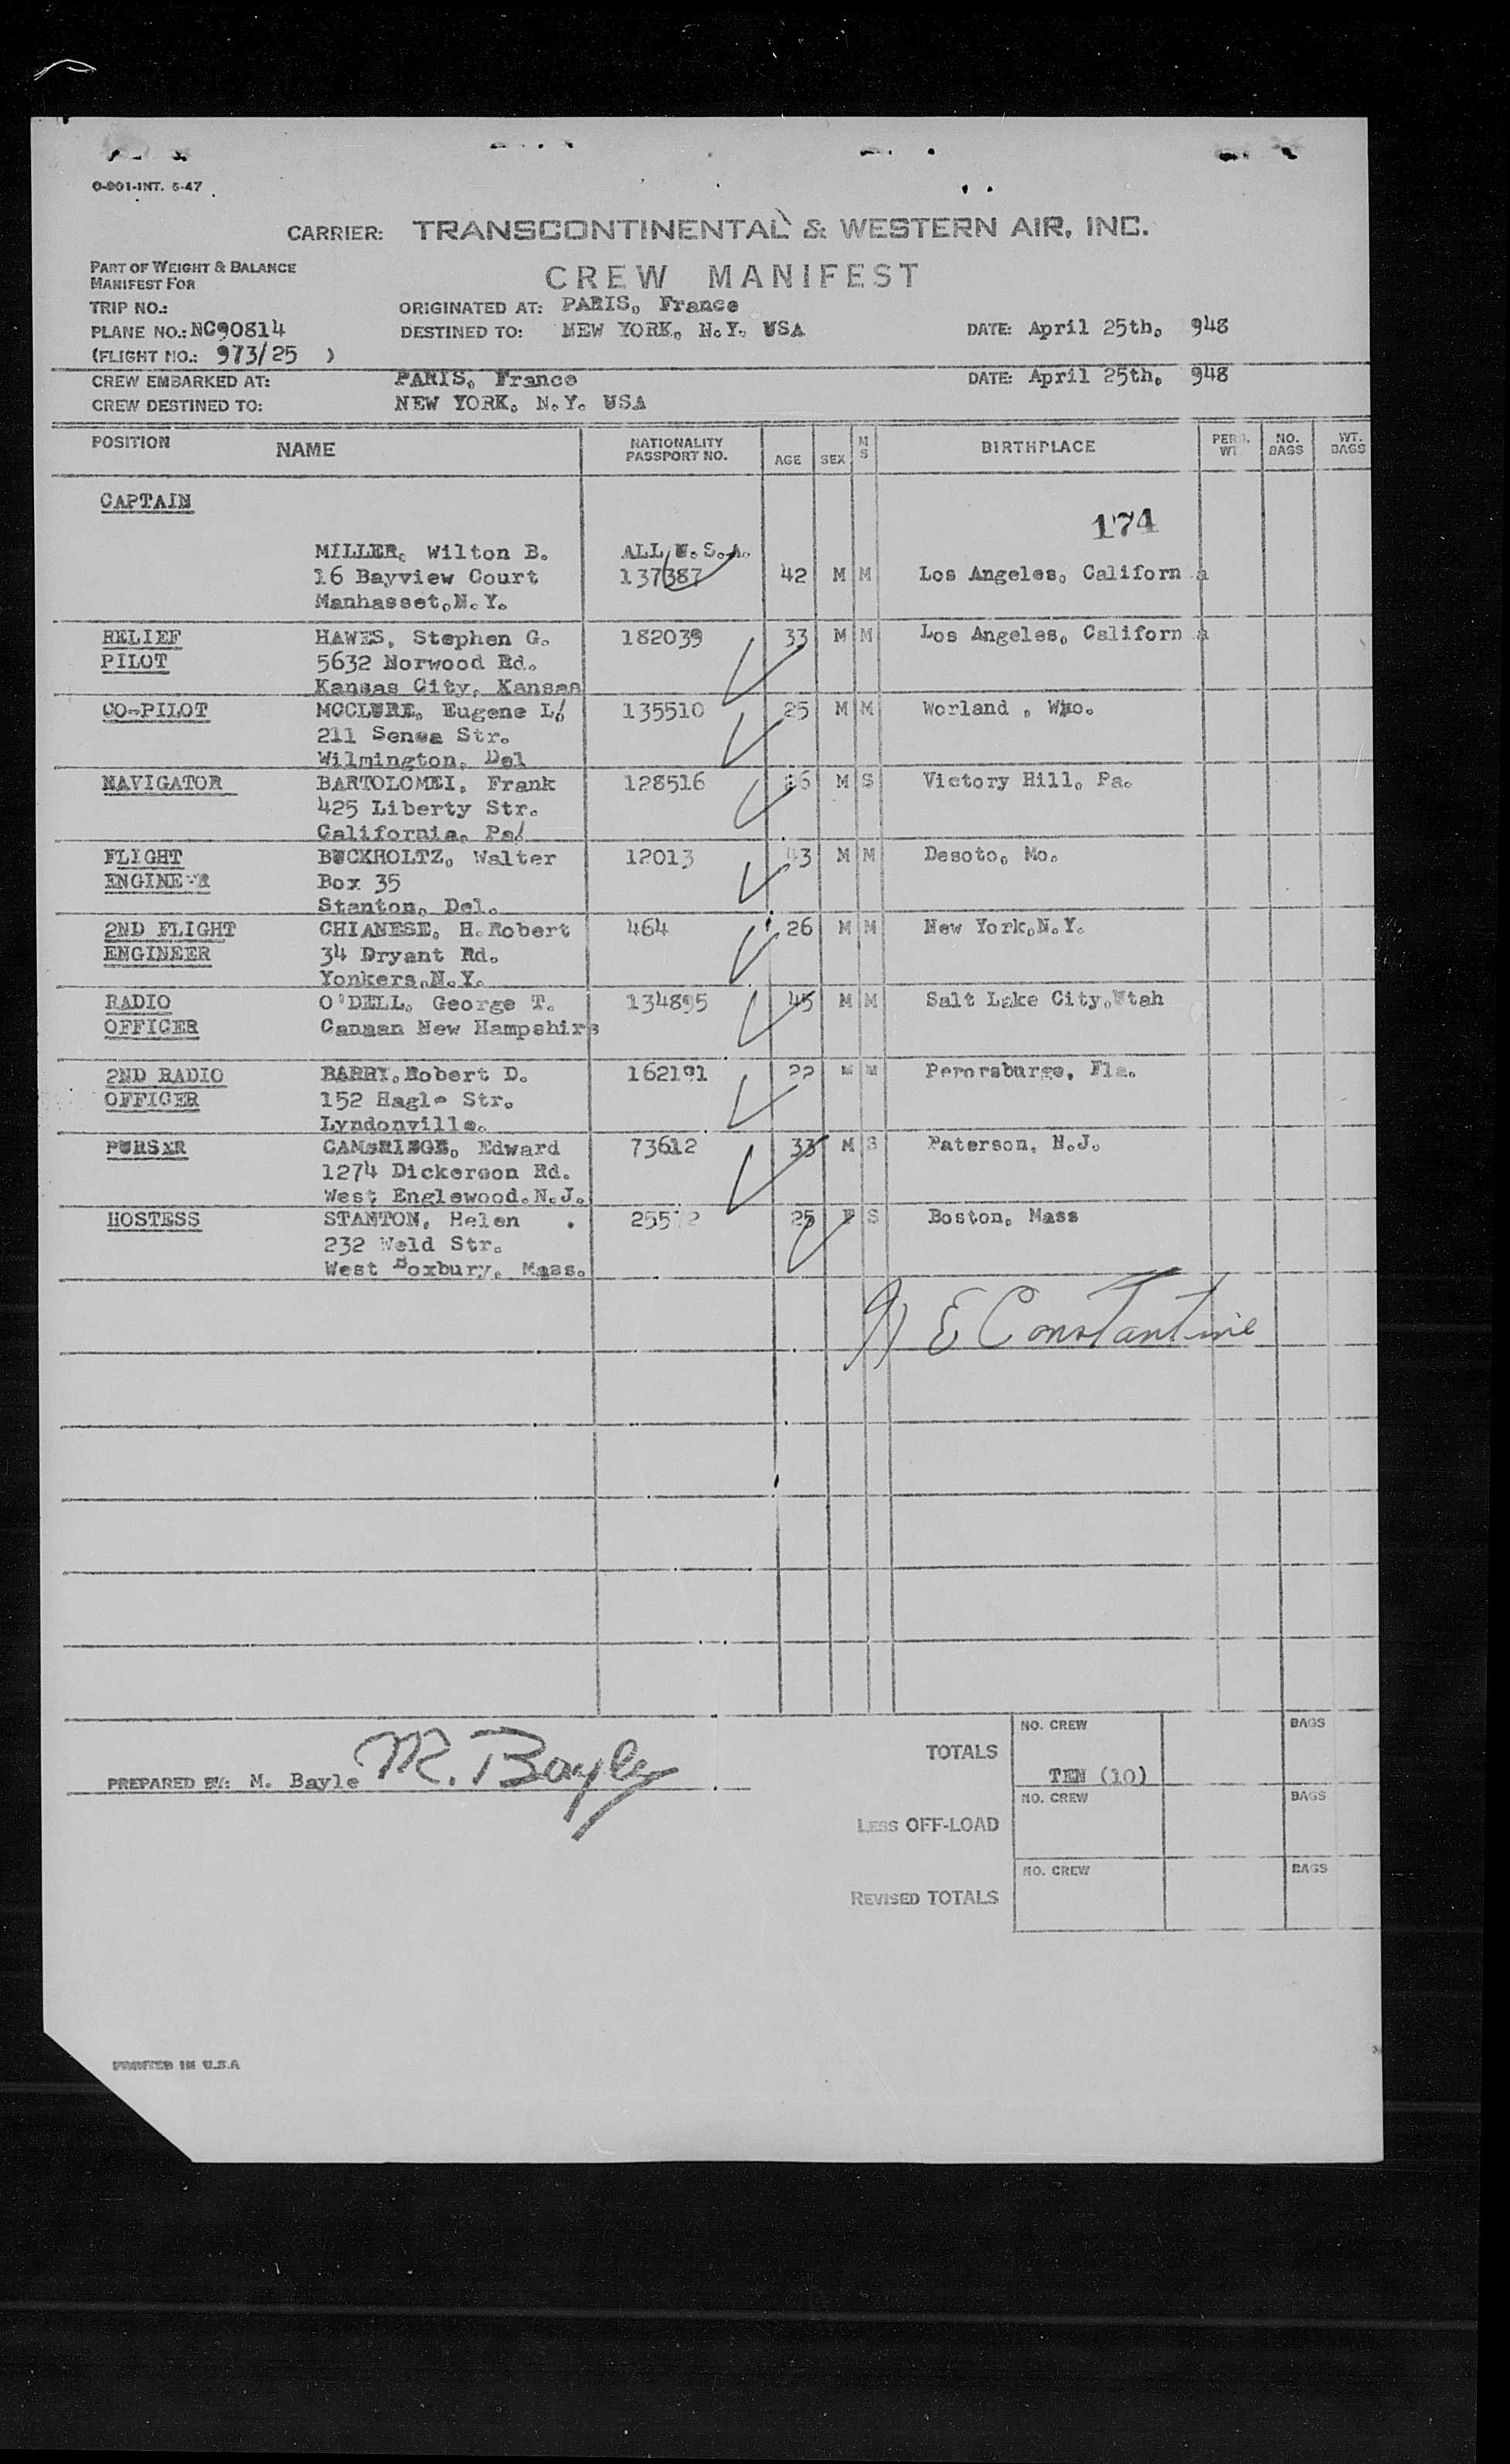 O-901-INT. 6-47
CARRIER: TRANSCONTINENTAL & WESTERN AIR, INC.
PART OF WEIGHT & BALANCE
MANIFEST FOR
CREW MANIFEST
TRIP NO.: ORIGINATED AT: PARIS, France
PLANE NO.: NC90814 DESTINED TO: NEW YORK, N.Y. USA DATE: April 25th, 948
(FLIGHT NO.: 973/25 )
CREW EMBARKED AT: PARIS, France DATE: April 25th, 948
CREW DESTINED TO: NEW YORK, N.Y. USA
POSITION NAME NATIONALITY PASSPORT NO. AGE SEX M S BIRTHPLACE PERS. WT. NO. BAGS WT. BAGS
CAPTAIN
174
MILLER, Wilton B. ALL U.S.A.
16 Bayview Court 137387 42 M M Los Angeles, Californ a
Manhasset,N.Y.
RELIEF HAWES, Stephen G. 182039 33 M M Los Angeles, Californ a
PILOT 5632 Norwood Rd.
Kansas City, Kansas
CO-PILOT MCCLURE, Eugene L. 135510 25 M M Worland , Wyo.
211 Senea Str.
Wilmington, Del
NAVIGATOR BARTOLOMEI, Frank 128516 26 M S Victory Hill, Pa.
425 Liberty Str.
California, Pa.
FLIGHT BUCKHOLTZ, Walter 12013 43 M M Desoto, Mo.
ENGINEER Box 35
Stanton, Del.
2ND FLIGHT CHIANESE, H.Robert 464 26 M M New York,N.Y.
ENGINEER 34 Dryant Rd.
Yonkers,N.Y.
RADIO O'DELL, George T. 134895 45 M M Salt Lake City,Utah
OFFICER Canaan New Hampshire
2ND RADIO BARRY,Robert D. 162191 22 M M Perorsburge, Fla.
OFFICER 152 Hagle Str.
Lyndonville.
PURSER CAMBRIDGE, Edward 73612 33 M S Paterson, N.J.
1274 Dickerson Rd.
West Englewood.N.J.
HOSTESS STANTON, Helen . 25572 25 F S Boston, Mass
232 Weld Str.
West Roxbury, Mass.
E Constantine
NO. CREW BAGS
TOTALS
PREPARED BY: M. Bayle M. Bayle TEN (10)
NO. CREW BAGS
LESS OFF-LOAD
NO. CREW BAGS
REVISED TOTALS
PRINTED IN U.S.A